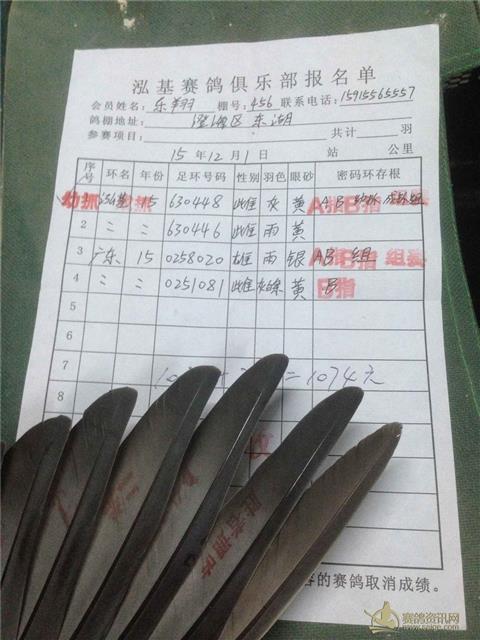 泓基赛鸽俱乐部报名单
会员姓名: 乐翔 棚号: 456 联系电话: 15915565557
鸽棚地址: 澄海区东湖
参赛项目: 共计 羽
15 年 12 月 1 日 站 公里
序号 环名 年份 足环号码 性别 羽色 眼砂 密码环存根
幼抓 15 630448 雌 灰 黄 A指B指
2 〃 〃 630446 雌 雨 黄
3 广东 15 0258020 雄 雨 银 AB 组 A指B指 组赛
4 〃 〃 0251081 雌 黄 B B指
5
6
7 = 1074元
8
的赛鸽取消成绩。
赛鸽资讯网
www.saige.com